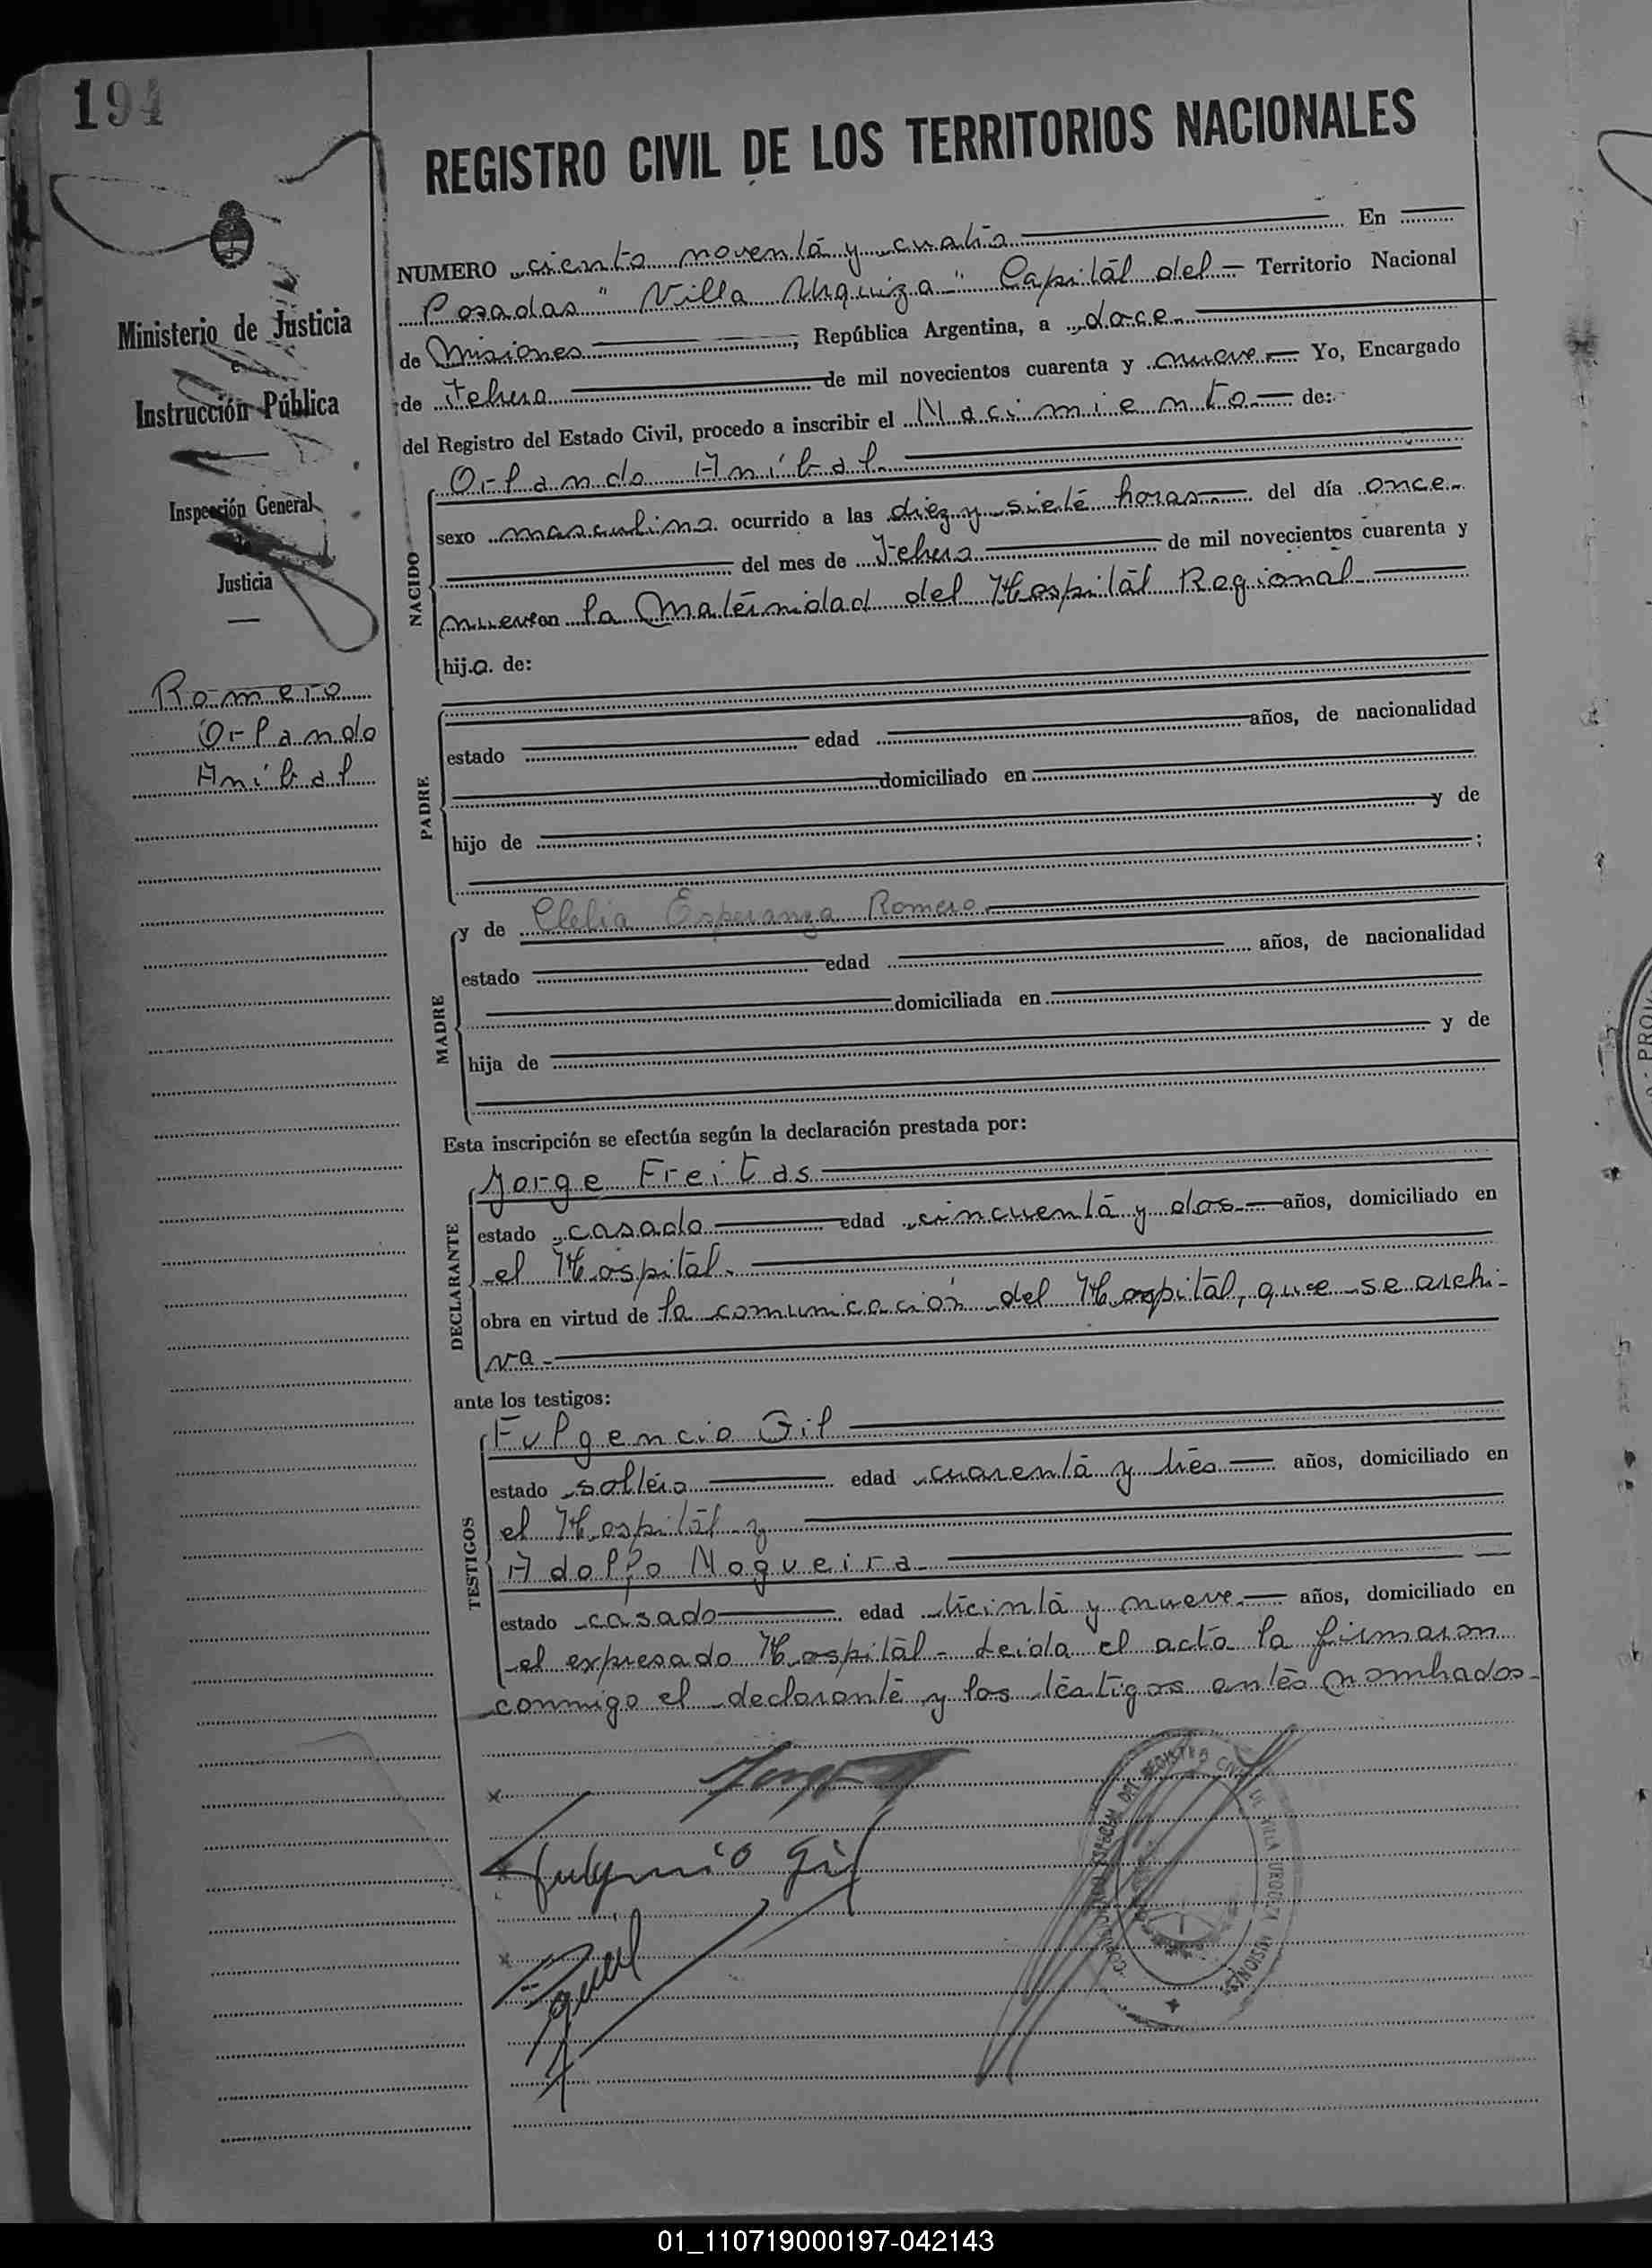 194
REGISTRO CIVIL DE LOS TERRITORIOS NACIONALES
Ministerio de Justicia
e
Instrucción Pública
Inspección General
de
Justicia
Romero
Orlando
Aníbal
NUMERO ciento noventa y cuatro En
Posadas "Villa Urquiza" Capital del Territorio Nacional
de Misiones, República Argentina, a doce
de Febrero de mil novecientos cuarenta y nueve Yo, Encargado
del Registro del Estado Civil, procedo a inscribir el Nacimiento de:
NACIDO
Orlando Aníbal.
sexo masculino ocurrido a las diez y siete horas del día once
del mes de Febrero de mil novecientos cuarenta y
nueve en la Maternidad del Hospital Regional
hijo de:
PADRE
estado edad años, de nacionalidad
domiciliado en
hijo de y de
;
MADRE
y de Clelia Esperanza Romero
estado edad años, de nacionalidad
domiciliada en
hija de y de
Esta inscripción se efectúa según la declaración prestada por:
DECLARANTE
Jorge Freitas
estado casado edad cincuenta y dos años, domiciliado en
el Hospital.
obra en virtud de la comunicación del Hospital, que se archi-
va.
ante los testigos:
TESTIGOS
Fulgencio Gil
estado soltero edad cuarenta y tres años, domiciliado en
el Hospital y
Adolfo Nogueira
estado casado edad treinta y nueve años, domiciliado en
el expresado Hospital - Leida el acta la firmaron
conmigo el declarante y los testigos antes nombrados-
x
Fulgencio Gil
x
DEL REGISTRO CIVIL DE VILLA URQUIZA MISIONES
01_110719000197-042143